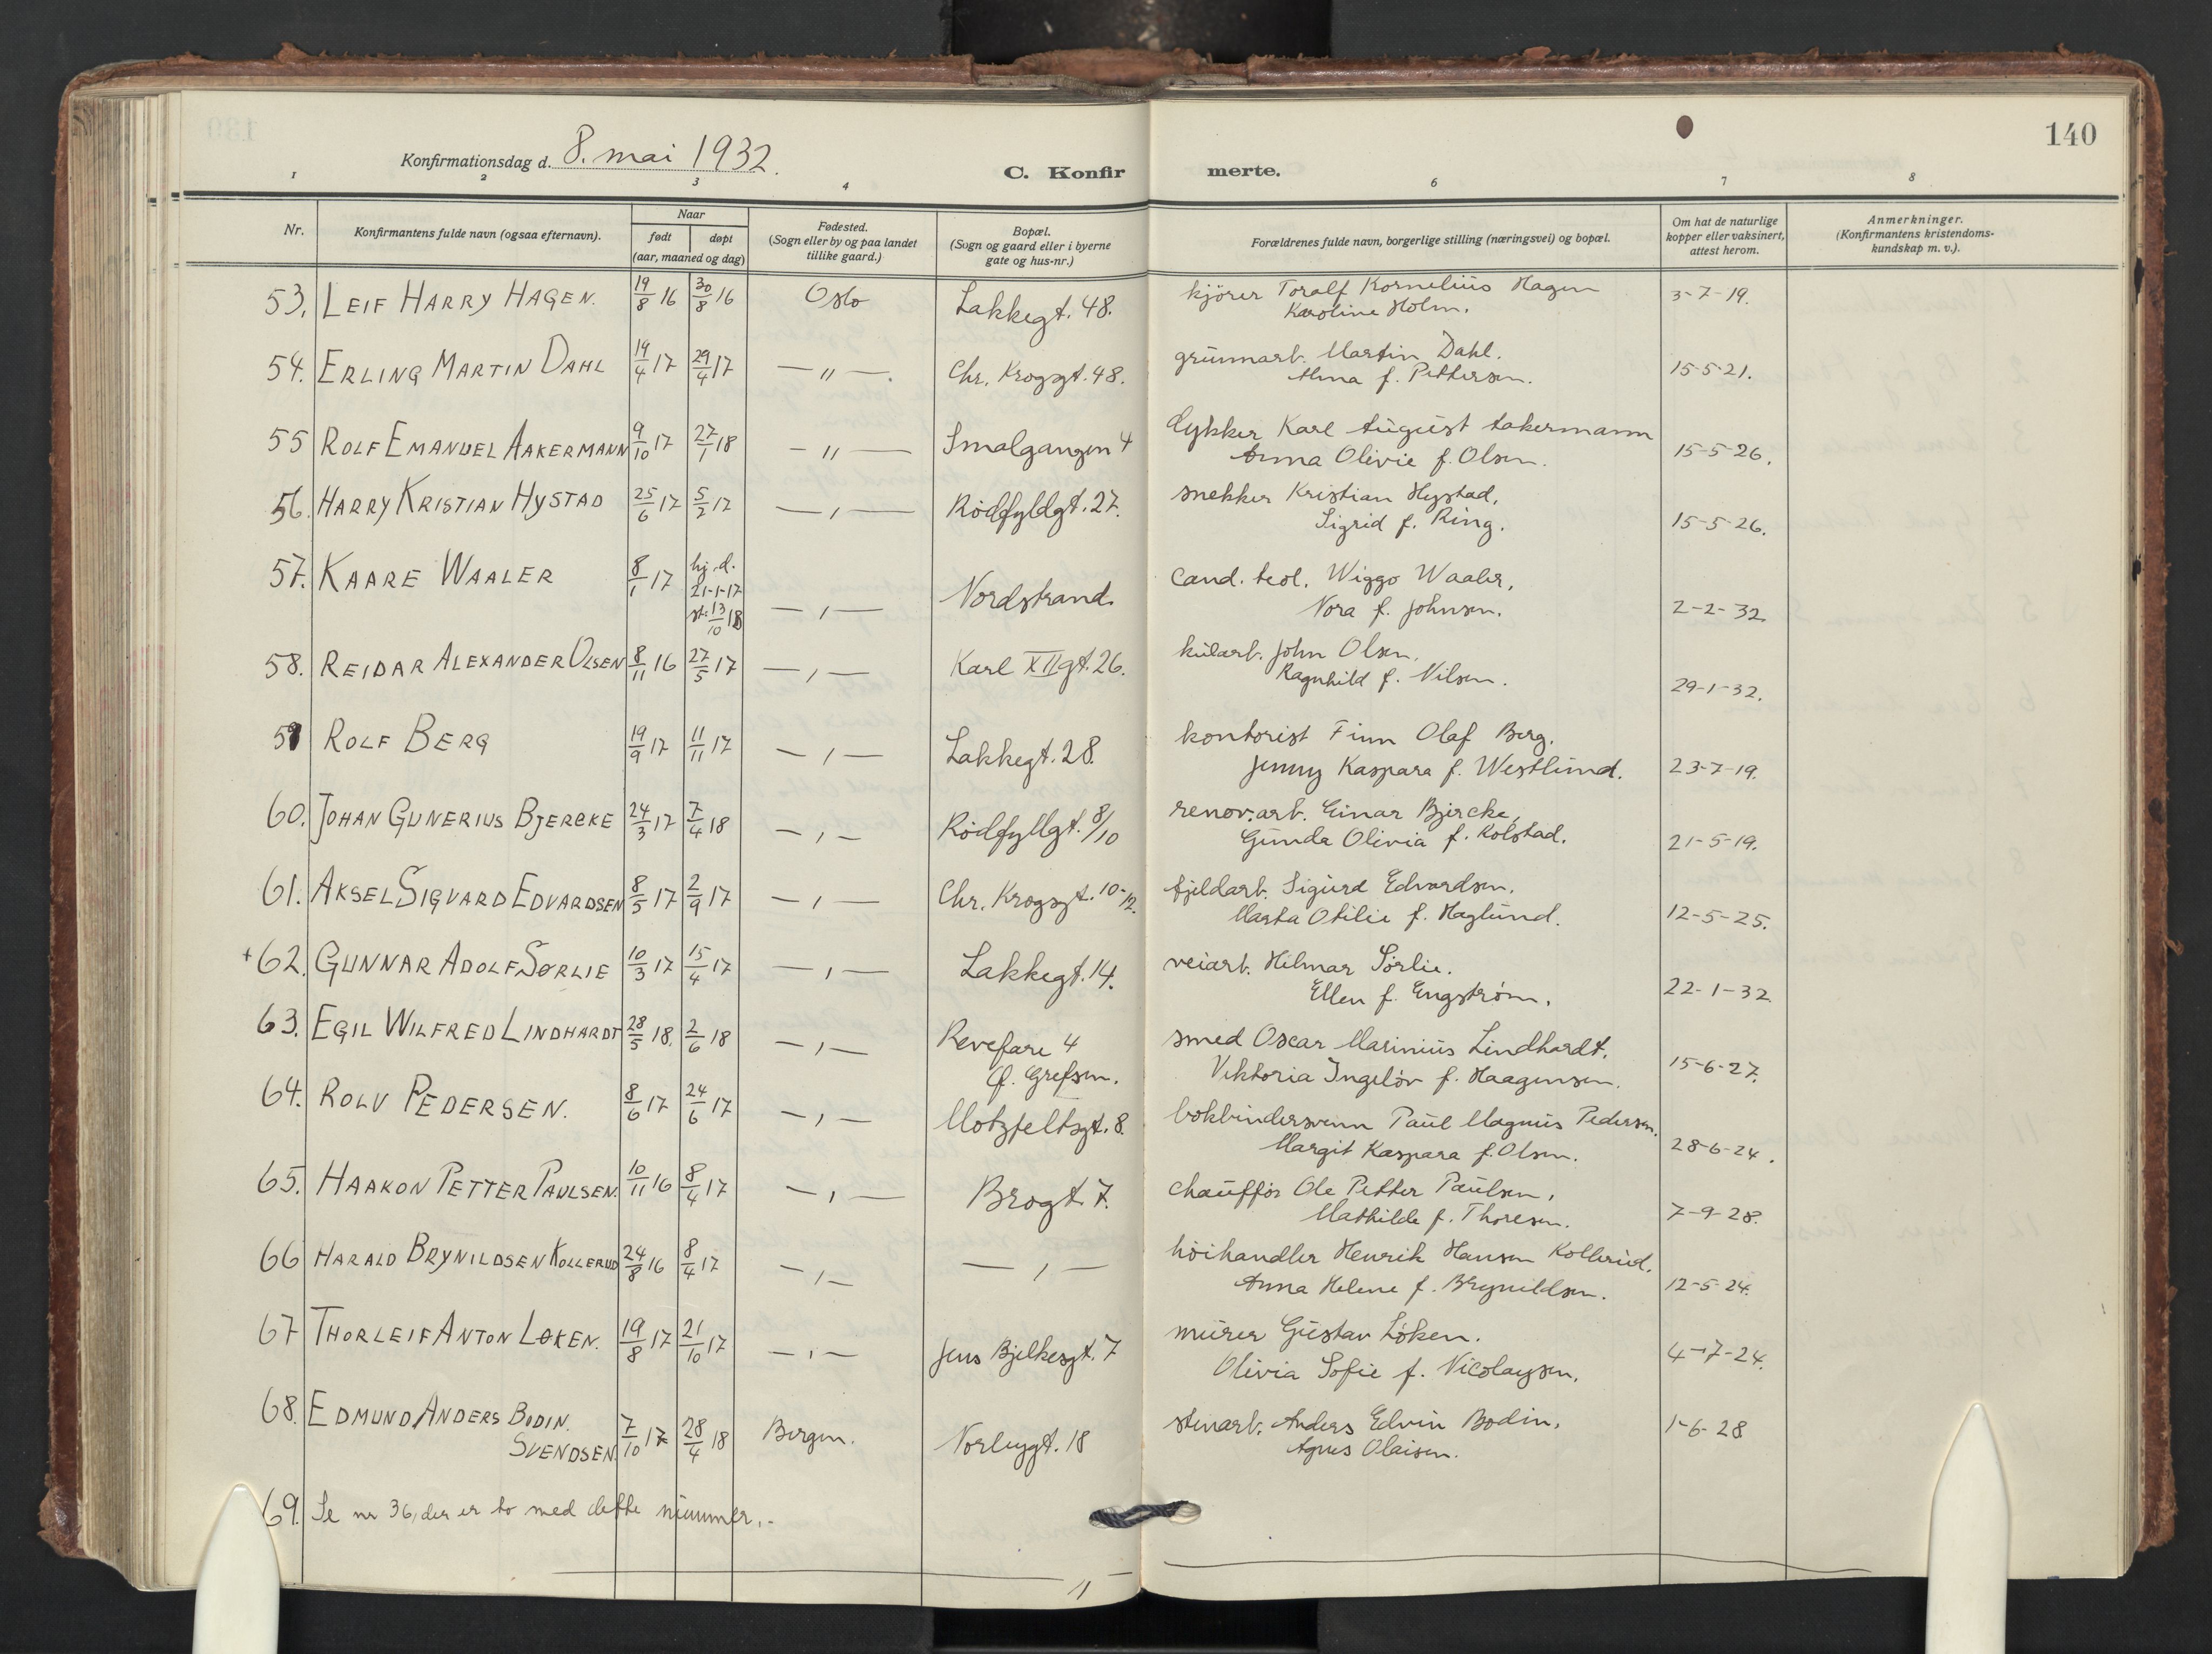 140
Konfirmationsdag d. 8. mai 1932.
C. Konfirmerte.
1 2 3 4 6 7 8
Nr. Konfirmantens fulde navn (ogsaa efternavn). Naar født døpt (aar, maaned og dag) Fødested. (Sogn eller by og paa landet tillike gaard.) Bopæl. (Sogn og gaard eller i byerne gate og hus-nr.) Forældrenes fulde navn, borgerlige stilling (næringsvei) og bopæl. Om hat de naturlige kopper eller vaksinert, attest herom. Anmerkninger. (Konfirmantens kristendomskundskap m. v.).
53. LEIF HARRY HAGEN. 19/8 16 30/8 16 Oslo Lakkegt. 48. kjörer Toralf Kornelius Hagen 3-7-19.
Karoline Holm.
54. ERLING MARTIN DAHL 19/4 17 29/4 17 — " —. Chr. Krogsgt. 48. grünnarb. Martin Dahl. 15-5-21.
Alma f. Pettersen.
55 ROLF EMANUEL AAKERMANN 9/10 17 27/1 18 — " — Smalgangen 4 dykker Karl August Aakermann 15-5-26.
Anna Olivie f. Olsen.
56. HARRY KRISTIAN HYSTAD 25/6 17 5/2 17 — , — Rödfyldgt. 27. snekker Kristian Hystad. 15-5-26.
Sigrid f. Ring.
57. KAARE WAALER 8/1 17 hj. d. 21-1-17 st: 13/10 18 — , — Nordstrand. cand. teol. Wiggo Waaler. 2-2-32.
Nora f. Johnsen.
58. REIDAR ALEXANDER OLSEN 8/11 16 27/5 17 — , — Karl XII gt. 26. kularb. John Olsen. 29-1-32.
Ragnhild f. Nilsen.
59 ROLF BERG 19/9 17 11/11 17 — , — Lakkegt. 28. kontorist Finn Olaf Berg. 23-7-19.
Jenny Kaspara f. Westlund.
60. JOHAN GUNERIUS BJERCKE 24/3 17 7/4 18 — , — Rödfyllgt. 8/10 renov.arb. Einar Bjercke, 21-5-19.
Gunda Olivia f. Rolstad.
61. AKSEL SIGVARD EDVARDSEN 8/5 17 2/9 17 — , — Chr. Krogsgt. 10-12. fjeldarb. Sigurd Edvardsen. 12-5-25.
Marta Otilie f. Haglund.
+ 62. GUNNAR ADOLF SØRLIE 10/3 17 15/4 17 — , — Lakkegt. 14. veiarb. Hilmar Sörlie. 22-1-32.
Ellen f. Engström.
63. EGIL WILFRED LINDHARDT 28/5 18. 2/6 18 — , — Revefare 4 smed Oscar Marinius Lindhardt. 15-6-27.
Ø. Grefsen. Viktoria Ingeløv f. Haagensen.
64. ROLV PEDERSEN. 8/6 17 24/6 17 — , — Motzfeltsgt. 8. bokbindersvenn Paul Magnus Pedersen. 28-6-24.
Margit Kaspara f. Olsen.
65. HAAKON PETTER PAULSEN. 10/11 16 8/4 17 — , — Brogt. 7. chauffør Ole Petter Paulsen, 7-9-28.
Mathilde f. Thoresen.
66 HARALD BRYNILDSEN KOLLERUD 24/8 16 8/4 17 — , — — , — höihandler Henrik Hansen Kollerud. 12-5-24.
Anna Helene f. Brynildsen.
67 THORLEIF ANTON LØKEN. 19/8 17 21/10 17 — , — Jens Bjelkesgt. 7 murer Gustav Løken. 4-7-24.
Olivia Sofie f. Nicolaysen.
68. EDMUND ANDERS BODIN. SVENDSEN. 7/10 17 28/4 18 Bergen. Norbygt. 18 stenarb. Anders Edvin Bodin. 1-6-28
Agnes Olaisen.
69. Se nr 36, der er to med dette nummer.-